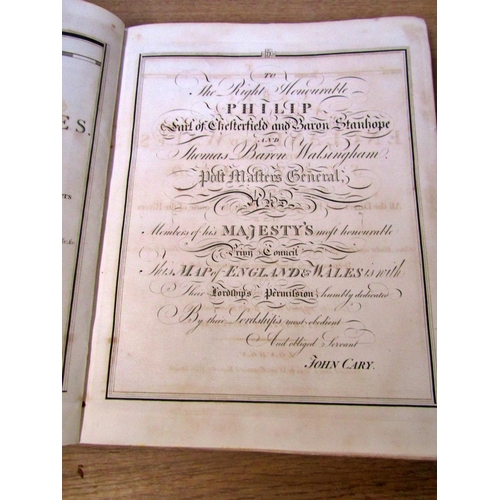 TO
The Right Honourable
PHILIP
Earl of Chesterfield and Baron Stanhope
AND
Thomas Baron Walsingham
Post Masters General,
AND
Members of his MAJESTY'S most honourable
Privy Council
This MAP of ENGLAND & WALES is with
Their Lordship's Permission humbly dedicated
By their Lordship's most obedient
And obliged Servant
JOHN CARY.
ES.